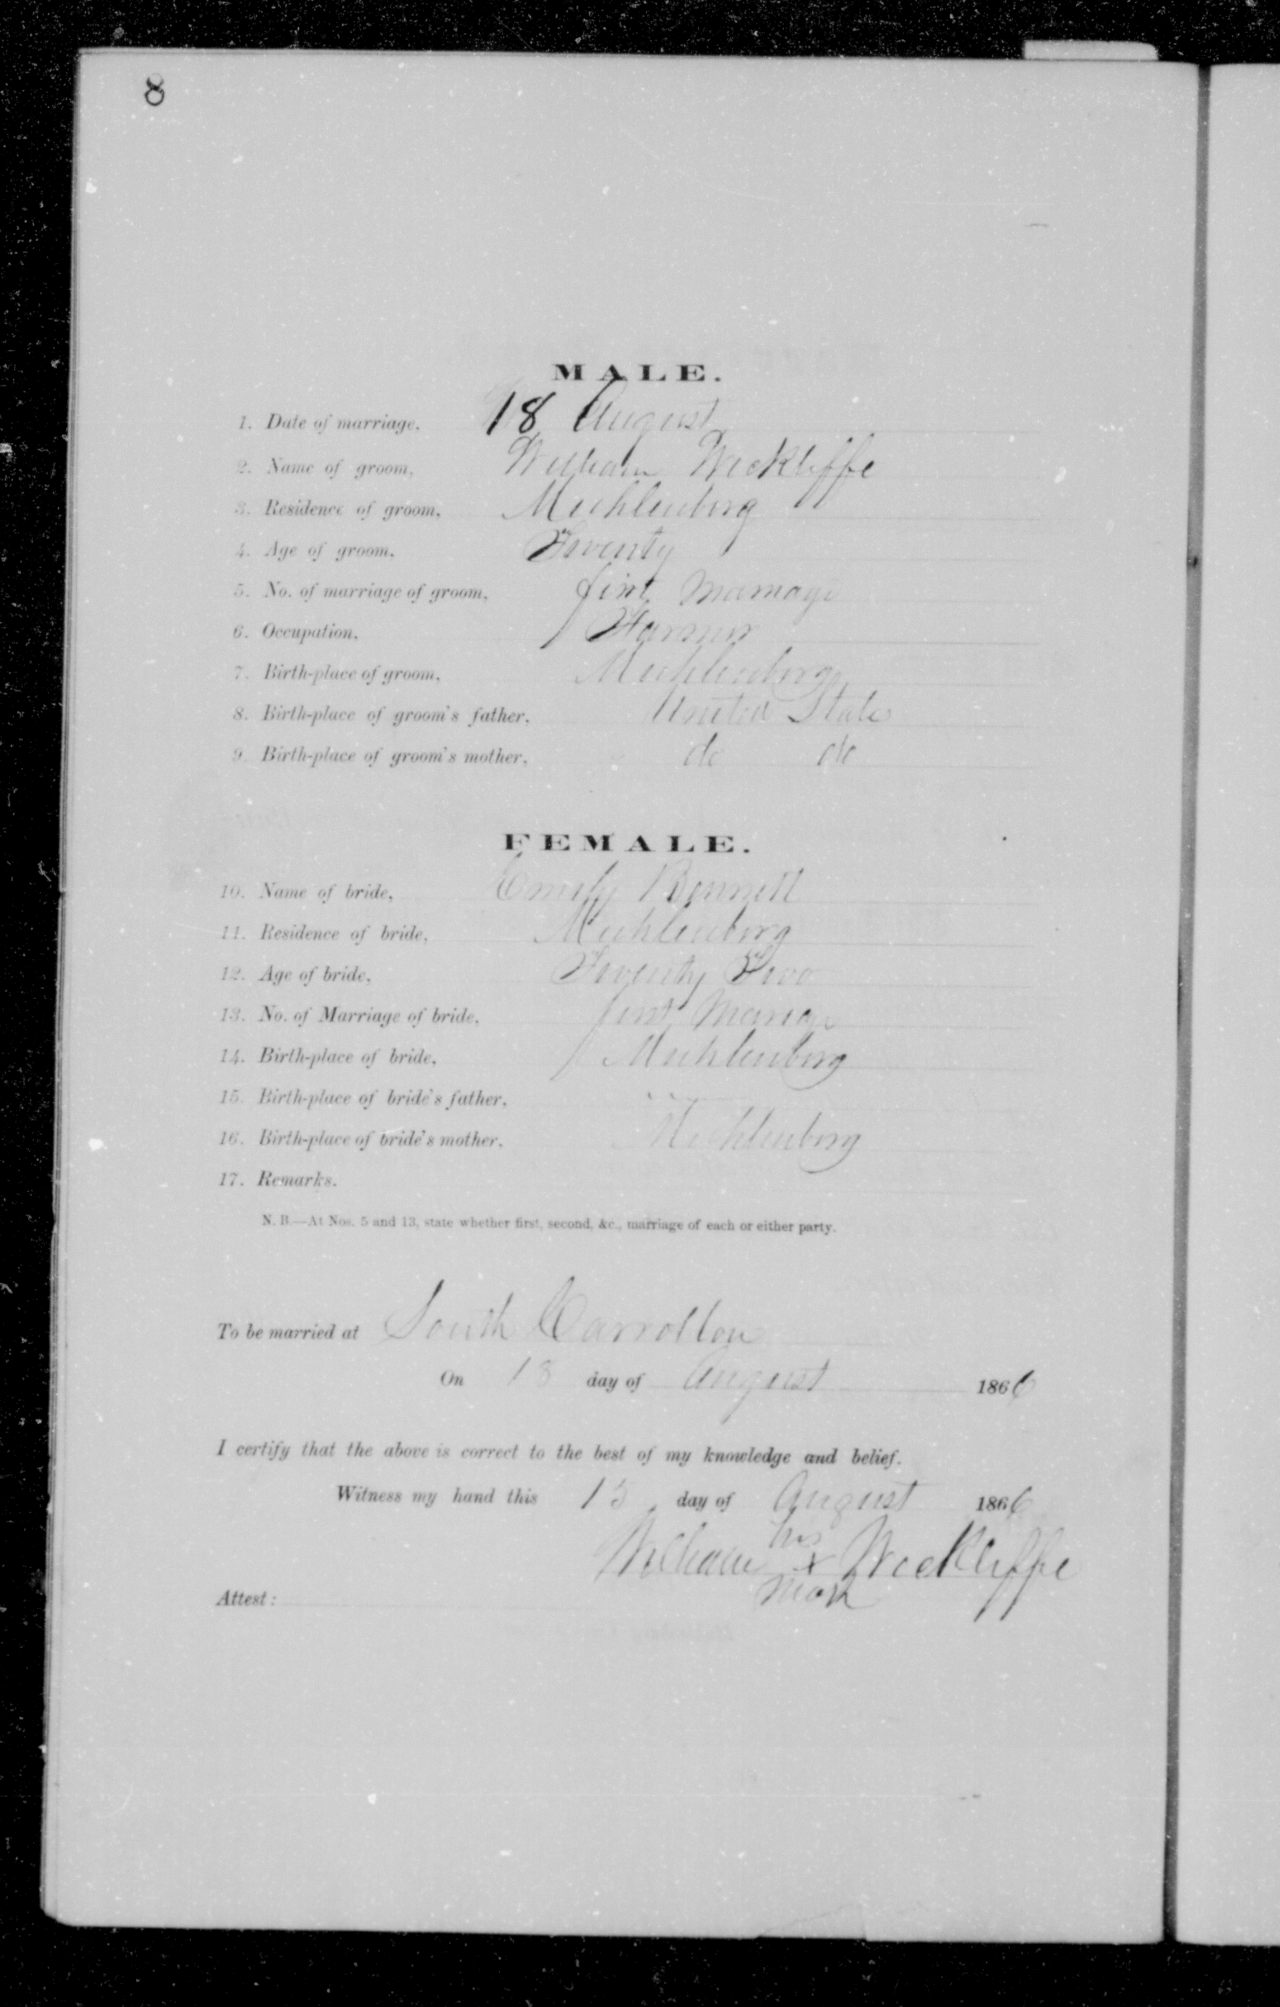 8
MALE.
1. Date of marriage, 18 August
2. Name of groom, William Wickliffe
3. Residence of groom, Muhlenberg
4. Age of groom, Twenty
5. No. of marriage of groom, first marriage
6. Occupation, Farmer
7. Birth-place of groom, Muhlenberg
8. Birth-place of groom's father, United State
9. Birth-place of groom's mother, do do
FEMALE.
10. Name of bride, Emily Bennett
11. Residence of bride, Muhlenberg
12. Age of bride, Twenty Two
13. No. of Marriage of bride, first
14. Birth-place of bride, Muhlenberg
15. Birth-place of bride's father,
16. Birth-place of bride's mother, Muhlenberg
17. Remarks.
N. B.—At Nos. 5 and 13, state whether first, second, &c., marriage of each or either party.
To be married at South Carrollton
On 18 day of August 1866
I certify that the above is correct to the best of my knowledge and belief.
Witness my hand this 15 day of August 1866
his
William x Wickliffe
mark
Attest: